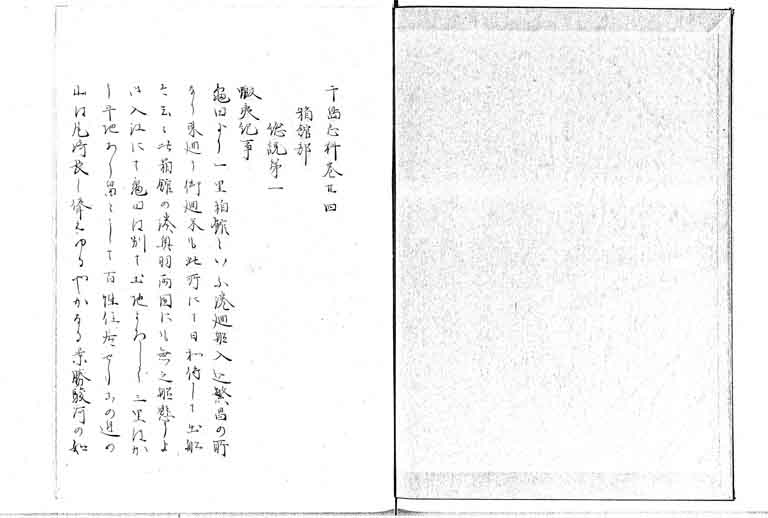 千島志料巻廿四
箱館部
総説第一
蝦夷紀事
亀田より一里箱館といふ湊廻船入込繁昌の所
なり東廻り御廻米も此所にて日和待して出船
と云々此箱館の湊奥羽両国にも無之船懸りよ
き入江にて亀田は別て土地よろしく三里ほか
し平地あり畠として百姓住居せり山の近の
山は尾崎長し峰もゆるやかなる景勝駿河の如